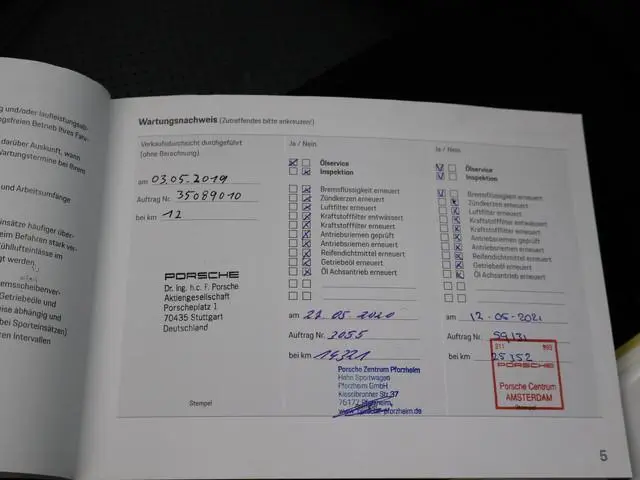 ng und/oder laufleistungsab-
ngsfreien Betrieb Ihres Fahr-
darüber Auskunft, wann
Wartungstermine bei Ihrem
und Arbeitsumfänge
insätze häufiger über-
beim Befahren stark ver-
Kühllufteinlässe im
gt werden.
emsscheibenver-
Getriebeöle und
eise abhängig und
bei Sporteinsätzen)
en Intervallen
Wartungsnachweis (Zutreffendes bitte ankreuzen!)
Verkaufsdurchsicht durchgeführt
(ohne Berechnung)
am 03.05.2019
Auftrag Nr. 35089010
bei km 12
PORSCHE
Dr. Ing. h.c. F. Porsche
Aktiengesellschaft
Porscheplatz 1
70435 Stuttgart
Deutschland
Stempel
Ja / Nein
Ölservice
Inspektion
Bremsflüssigkeit erneuert
Zündkerzen erneuert
Luftfilter erneuert
Kraftstofffilter entwässert
Kraftstofffilter erneuert
Antriebsriemen geprüft
Antriebsriemen erneuert
Reifendichtmittel erneuert
Getriebeöl erneuert
Öl Achsantrieb erneuert
am 22.05.2020
Auftrag Nr. 2055
bei km 14321
Porsche Zentrum Pforzheim
Hahn Sportwagen
Pforzheim GmbH
Kieselbronner Str. 37
75172 Pforzheim
Ja / Nein
Ölservice
Inspektion
Bremsflüssigkeit erneuert
Zündkerzen erneuert
Luftfilter erneuert
Kraftstofffilter entwässert
Kraftstofffilter erneuert
Antriebsriemen geprüft
Antriebsriemen erneuert
Reifendichtmittel erneuert
Getriebeöl erneuert
Öl Achsantrieb erneuert
am 12-05-2021
Auftrag Nr. 59131
bei km 25352
911
PORSCHE
Porsche Centrum
AMSTERDAM
Stempel
5